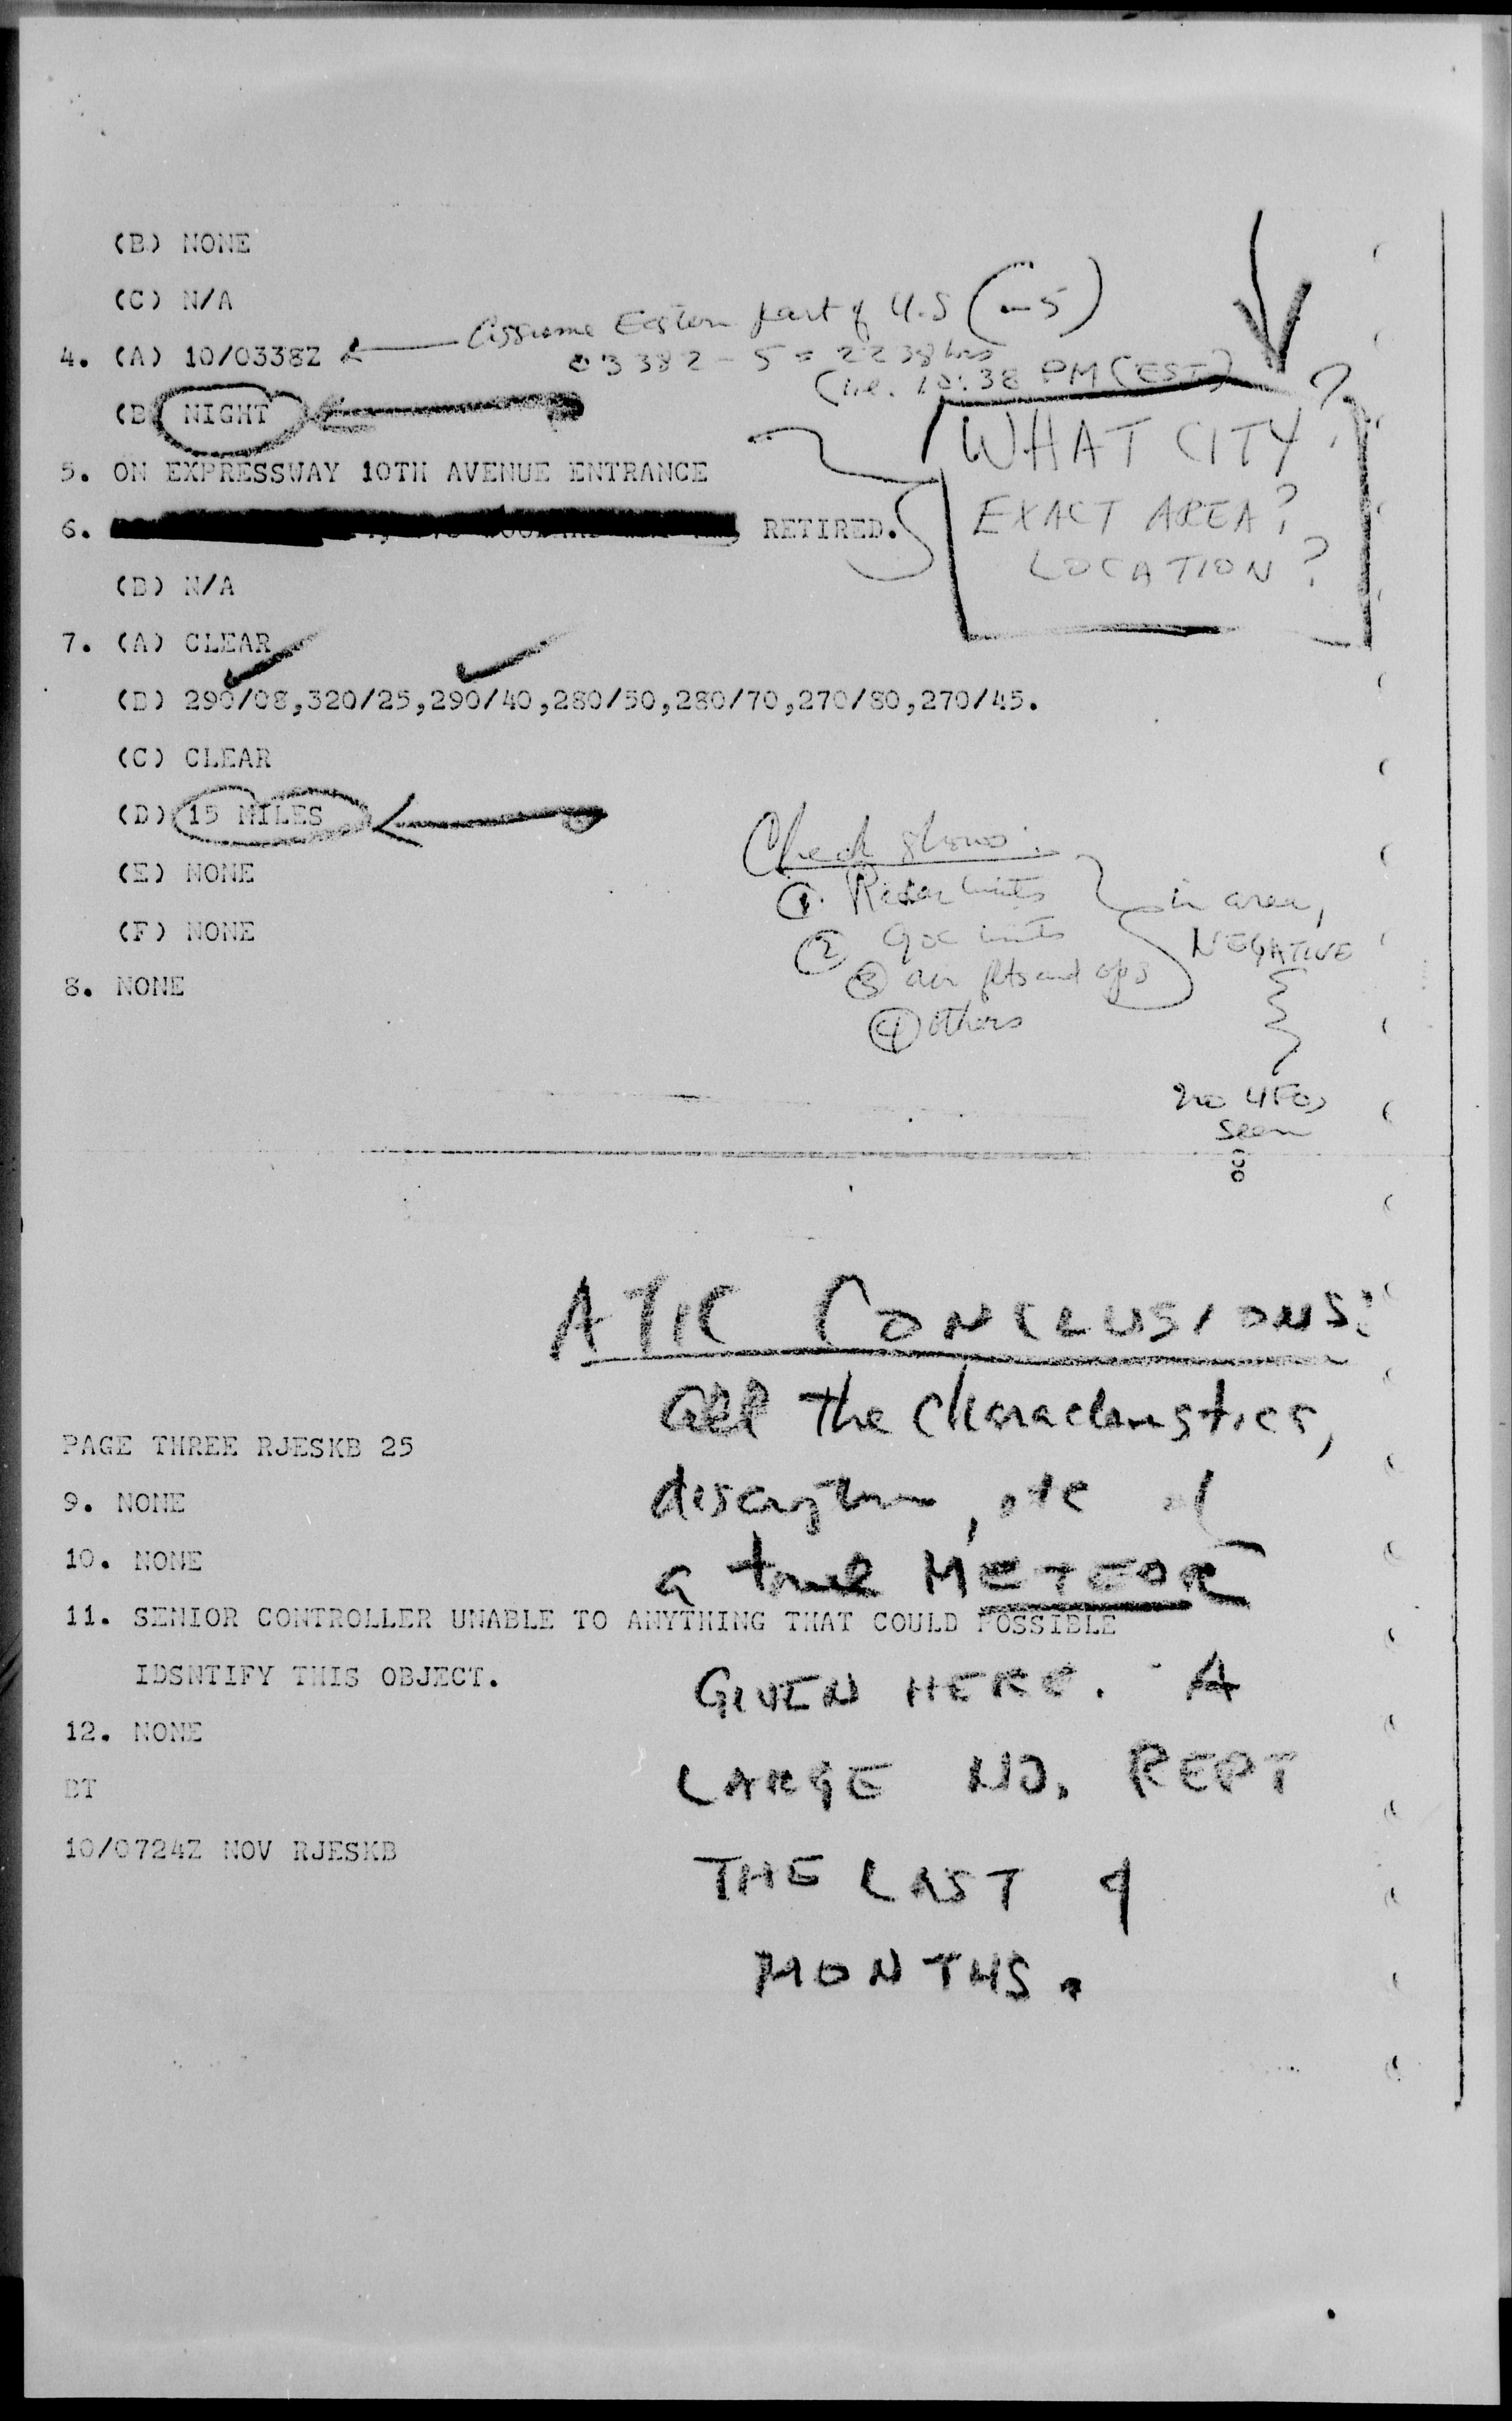 (B) NONE
(C) N/A
Assume Eastern part of U.S (-5)
4. (A) 10/0338Z
0338Z - 5 = 2238 hrs
(i.e. 10:38 PM (EST)
(B) NIGHT
WHAT CITY?
5. ON EXPRESSWAY 10TH AVENUE ENTRANCE
EXACT AREA?
6. RETIRED.
LOCATION?
(B) N/A
7. (A) CLEAR
(B) 290/08,320/25,290/40,280/50,280/70,270/80,270/45.
(C) CLEAR
(D) 15 MILES
Check shows:
(E) NONE
① Radar units
in area,
(F) NONE
② GOC units
NEGATIVE
③ air flts and ops
8. NONE
④ others
no UFOs
seen
ATIC CONCLUSIONS:
all the characteristics,
PAGE THREE RJESKB 25
9. NONE
description, etc of
10. NONE
a true METEOR
11. SENIOR CONTROLLER UNABLE TO ANYTHING THAT COULD POSSIBLE
IDSNTIFY THIS OBJECT.
GIVEN HERE. A
12. NONE
LARGE NO. REPT
BT
10/0724Z NOV RJESKB
THE LAST 4
MONTHS.